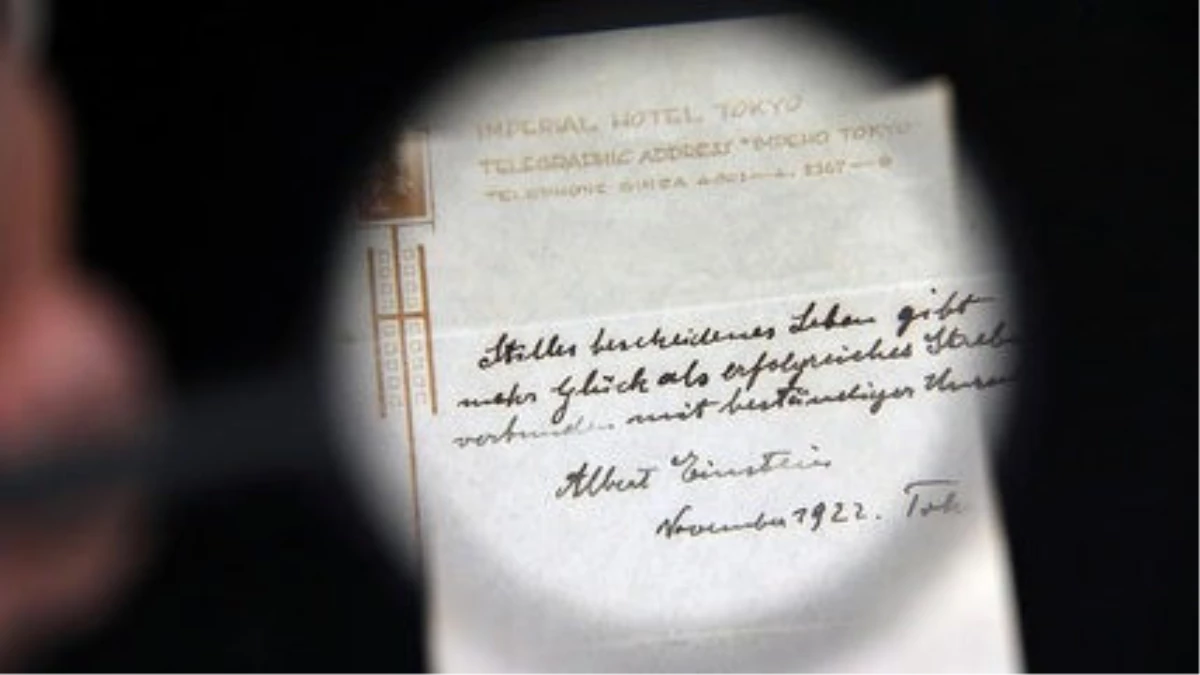 IMPERIAL HOTEL TOKYO
TELEGRAPHIC ADDRESS "IMPEHO TOKYO"
TELEPHONE GINZA
Stilles bescheidenes Leben gibt
mehr Glück als erfolgreiches Streb
verbunden mit beständiger Unru
Albert Einstein
November 1922. Tok